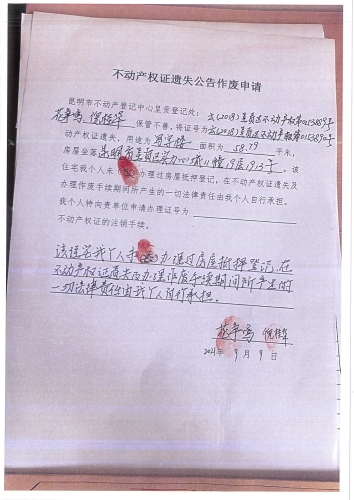 不动产权证遗失公告作废申请
昆明市不动产登记中心呈贡登记处：云(2018)呈贡区不动产权第0153889号
花争鸣 倪桂华 保管不善，将证号为云(2018)呈贡区不动产权第0153890号
动产权证遗失，用途为 面积为 58.79 平米，
房屋坐落昆明市呈贡区 11幢19层1913号。该
住宅我个人未 办理过房屋抵押登记，在不动产权证遗失及
办理作废手续期间所产生的一切法律责任由我个人自行承担。
我个人特向贵单位申请办理证号为
不动产权证的注销手续。
该住宅我个人未 办理过房屋抵押登记，在
不动产权证遗失及办理作废手续期间所产生的
一切法律责任由我个人自行承担。
花争鸣 倪桂华
2021年 9月 9日